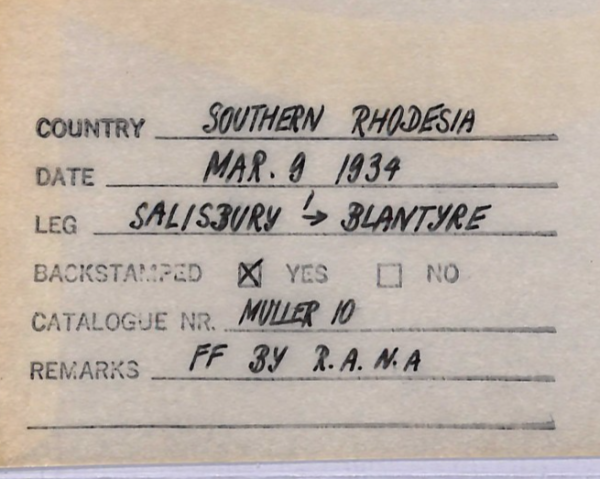 COUNTRY SOUTHERN RHODESIA
DATE MAR. 9 1934
LEG SALISBURY → BLANTYRE
BACKSTAMPED ☒ YES ☐ NO
CATALOGUE NR. MULLER 10
REMARKS FF BY R.A.N.A